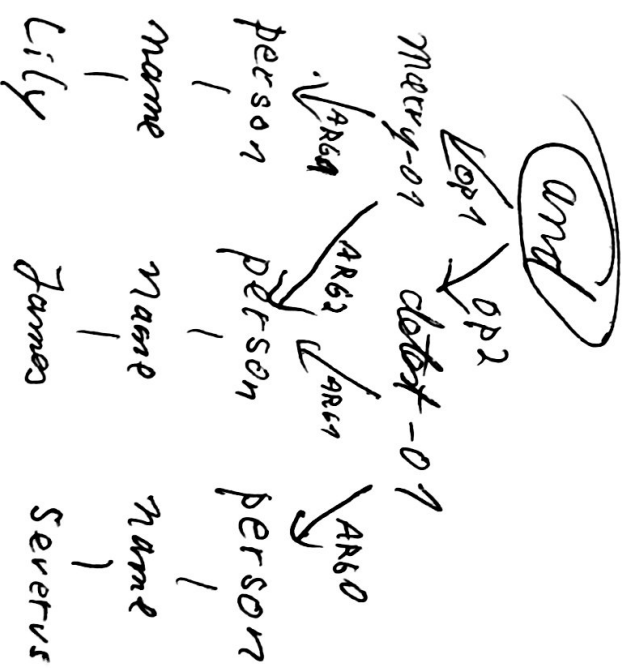 and
OP1 OP2
marry-01 detest-01
ARG1 ARG2 ARG1 ARG0
person person person
name name name
Lily James Severus